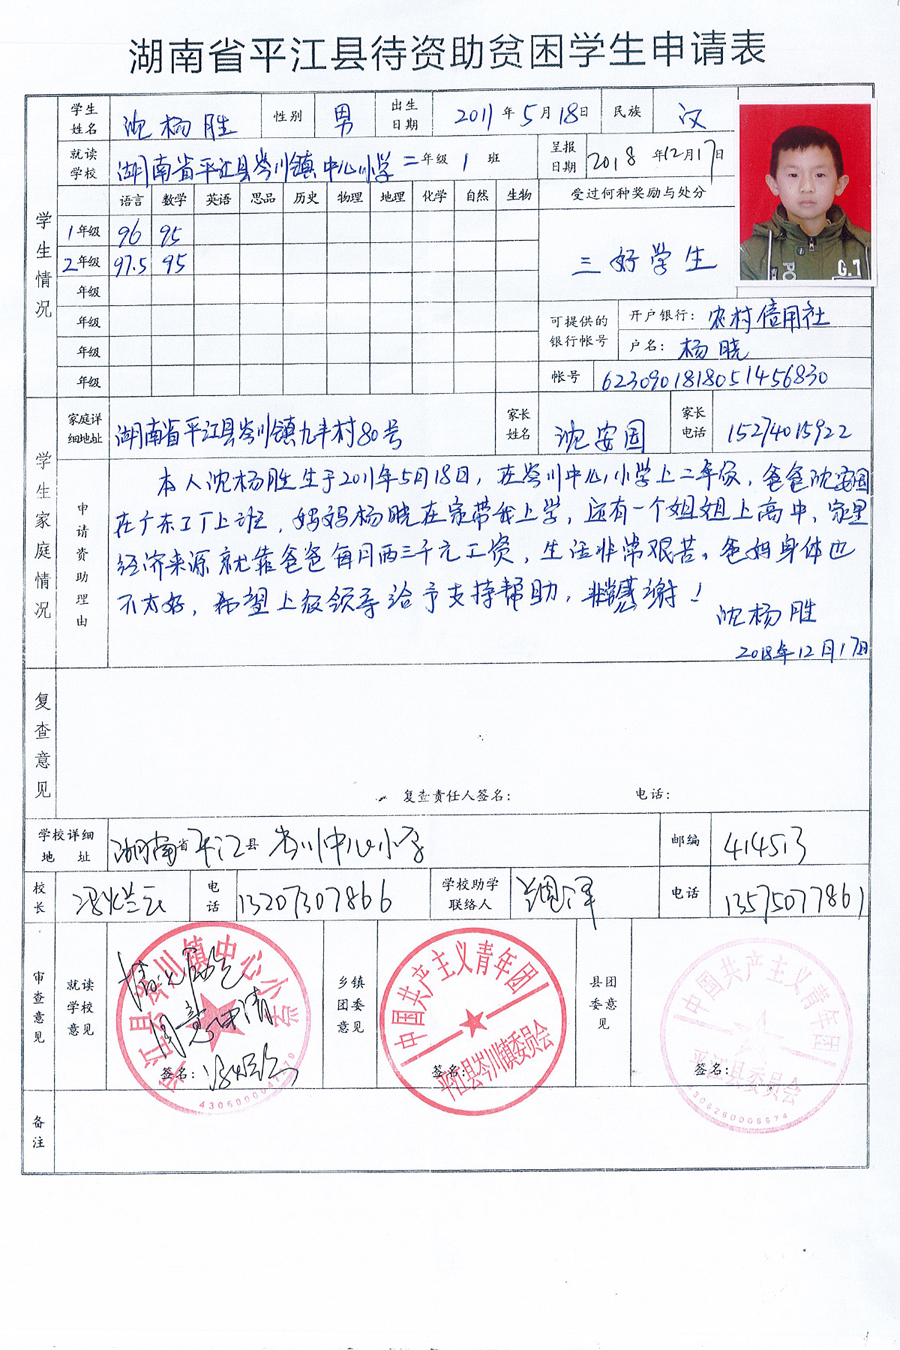 湖南省平江县待资助贫困学生申请表
学生情况
学生姓名 沈杨胜 性别 男 出生日期 2011年5月18日 民族 汉
就读学校 湖南省平江县岑川镇中心小学二年级1班 呈报日期 2018年12月17日
语言 数学 英语 思品 历史 物理 地理 化学 自然 生物 受过何种奖励与处分
1年级 96 95
2年级 97.5 95 三好学生
年级
年级 可提供的银行帐号 开户银行：农村信用社
年级 户名：杨晓
年级 帐号 6230901818051456830
G.1
学生家庭情况
家庭详细地址 湖南省平江县岑川镇九丰村80号 家长姓名 沈安国 家长电话 15274015922
申请资助理由
本人沈杨胜生于2011年5月18日，在岑川中心小学上二年级，爸爸沈安国
在广东工厂上班，妈妈杨晓在家带我上学，还有一个姐姐上高中，家里
经济来源就靠爸爸每月两三千元工资，生活非常艰苦。爸妈身体也
不太好，希望上级领导给予支持帮助，非常感谢！
沈杨胜
2018年12月17日
复查意见
复查责任人签名： 电话：
学校详细地址 湖南省平江县岑川中心小学 邮编 414513
校长 电话 13207307866 学校助学联络人 电话 13575077861
审查意见
就读学校意见 情况属实 同意申请 签名：
平江县岑川镇中心小学
乡镇团委意见 签名：
中国共产主义青年团
平江县岑川镇委员会
县团委意见 签名：
中国共产主义青年团
平江县委员会
备注